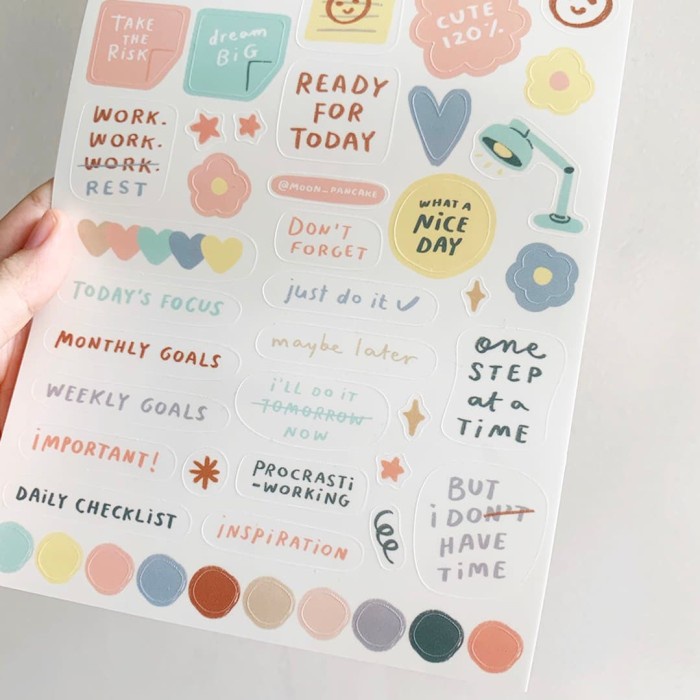 TAKE
THE
RISK
dream
BiG
CUTE
120%
READY
FOR
TODAY
WORK.
WORK.
WORK.
REST
@MOON_PANCAKE
WHAT A
NiCE
DAY
DON'T
FORGET
TODAY'S FOCUS
just do it
MONTHLY GOALS
maybe later
one
STEP
at a
TiME
WEEKLY GOALS
i'LL DO iT
TOMORROW
NOW
iMPORTANT!
PROCRASTi
-WORKiNG
BUT
i DON'T
HAVE
TiME
DAiLY CHECKLiST
iNSPiRATiON